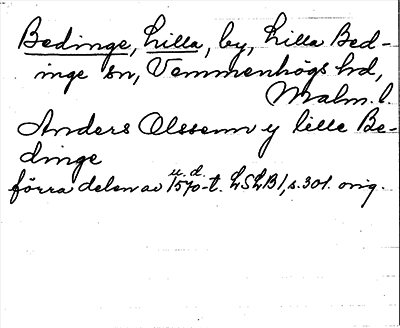 Bedinge, Lilla, by, Lilla Bed-
inge sn, Vemmenhögs hd,
Malm. l.
Anders Olssenn y lille Be-
dinge
u. d.
förra delen av 1570-t. LSLB1, s. 301. orig.